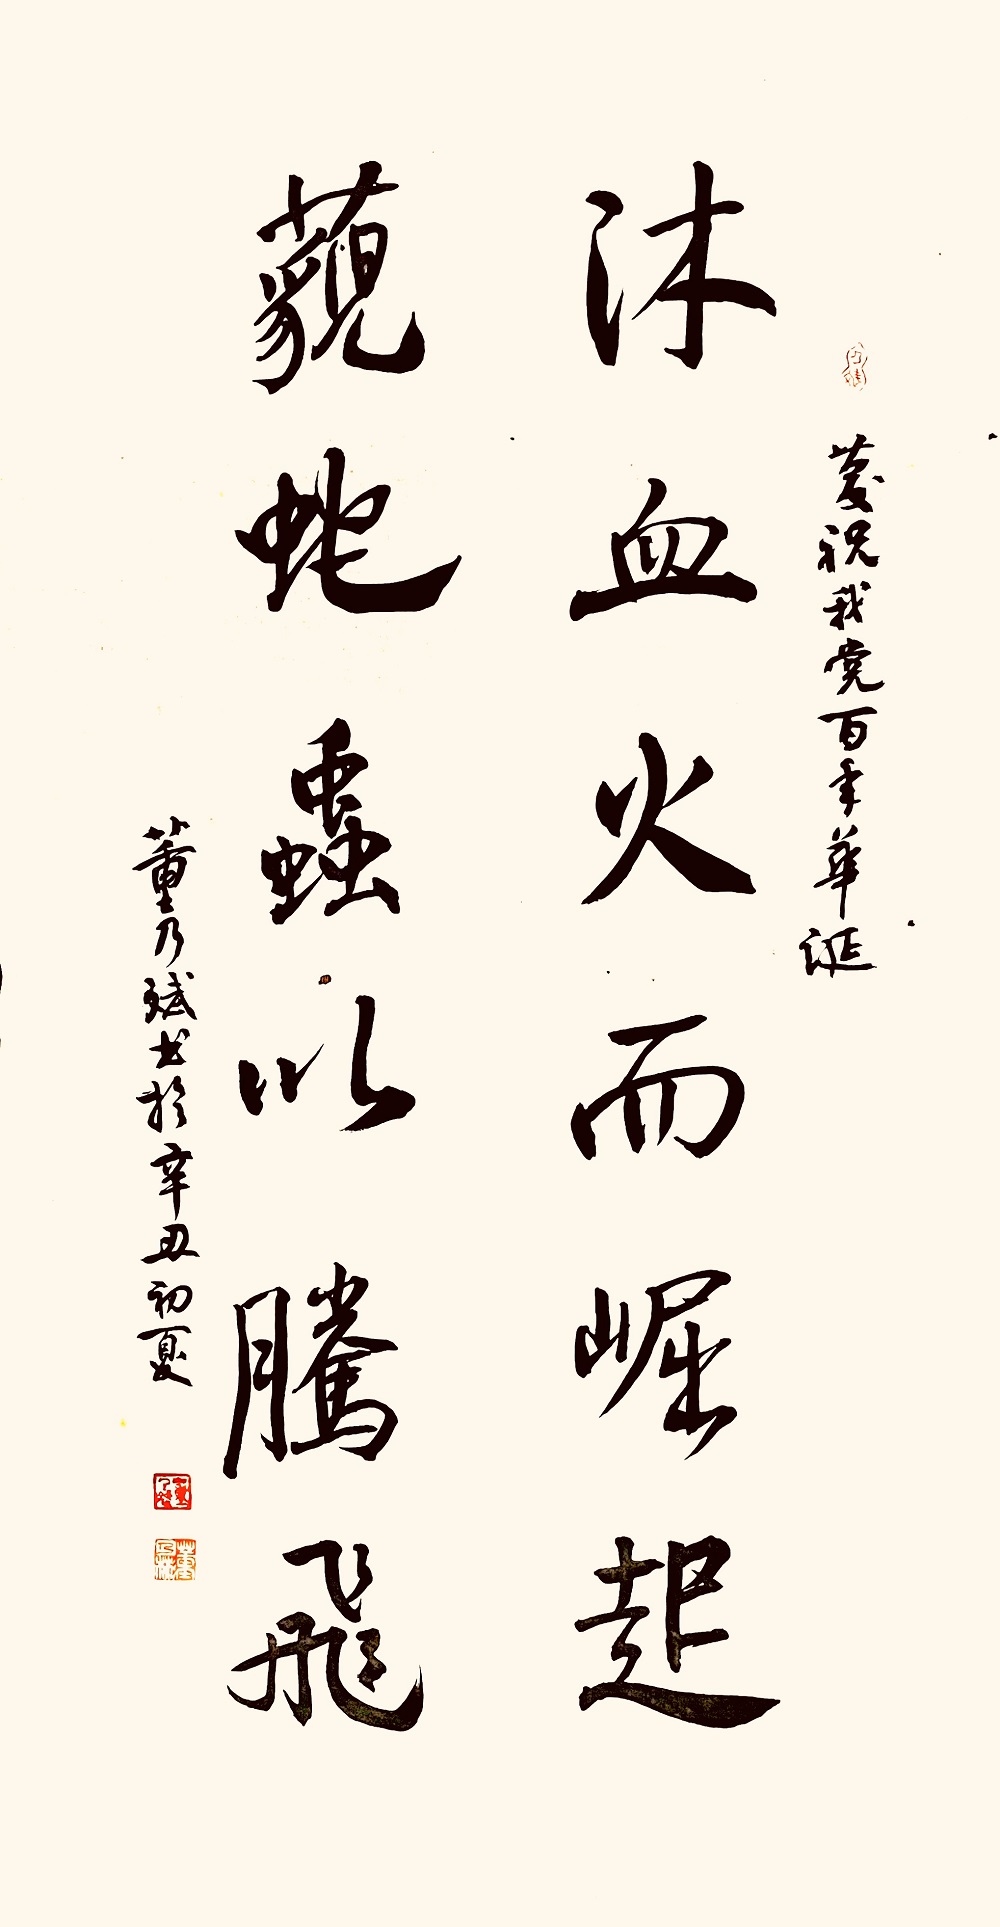 慶祝我党百年華誕
沐血火而崛起
藐蛇蟲以騰飛
董乃斌书於辛丑初夏